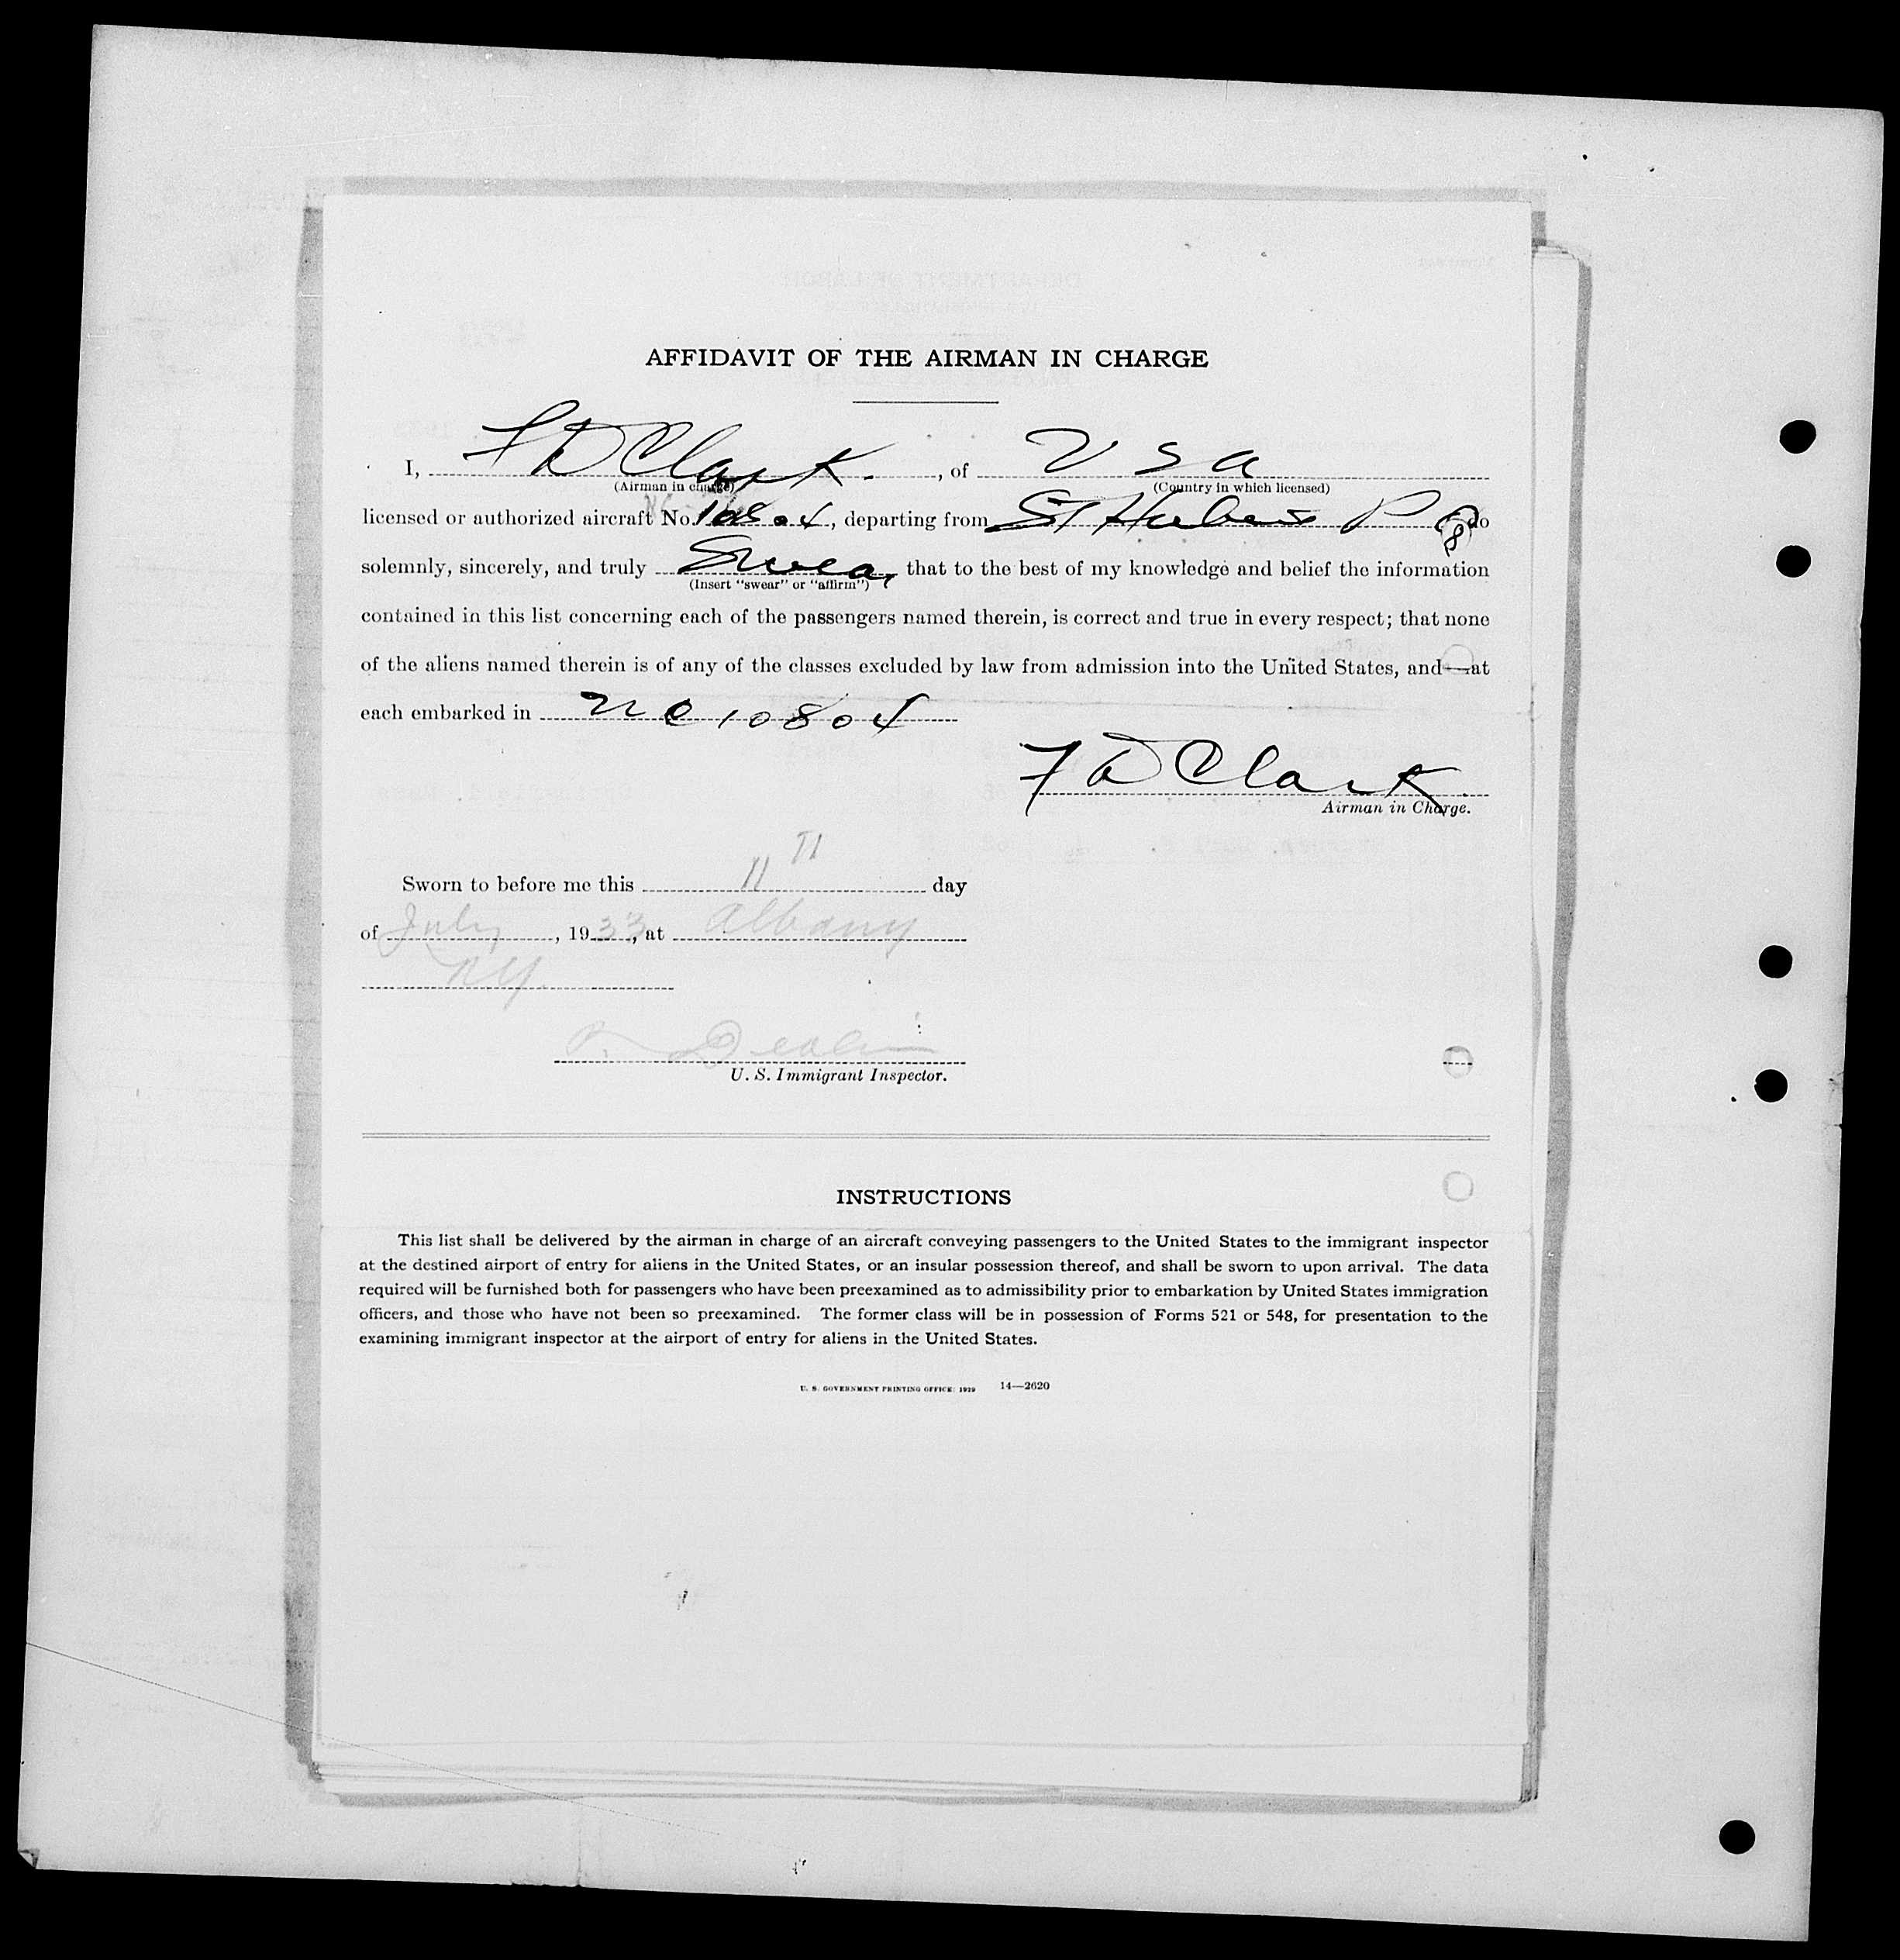 AFFIDAVIT OF THE AIRMAN IN CHARGE
I, F D Clark, of U S A
(Airman in charge) (Country in which licensed)
licensed or authorized aircraft No. 10804, departing from St Hubers P Q do
solemnly, sincerely, and truly Swear that to the best of my knowledge and belief the information
(Insert "swear" or "affirm")
contained in this list concerning each of the passengers named therein, is correct and true in every respect; that none
of the aliens named therein is of any of the classes excluded by law from admission into the United States, and—at
each embarked in NC 10804
F D Clark
Airman in Charge.
Sworn to before me this 11 TH day
of July, 1933, at Albany
NY.
U. S. Immigrant Inspector.
INSTRUCTIONS
This list shall be delivered by the airman in charge of an aircraft conveying passengers to the United States to the immigrant inspector
at the destined airport of entry for aliens in the United States, or an insular possession thereof, and shall be sworn to upon arrival. The data
required will be furnished both for passengers who have been preexamined as to admissibility prior to embarkation by United States immigration
officers, and those who have not been so preexamined. The former class will be in possession of Forms 521 or 548, for presentation to the
examining immigrant inspector at the airport of entry for aliens in the United States.
U. S. GOVERNMENT PRINTING OFFICE: 1929 14—2620